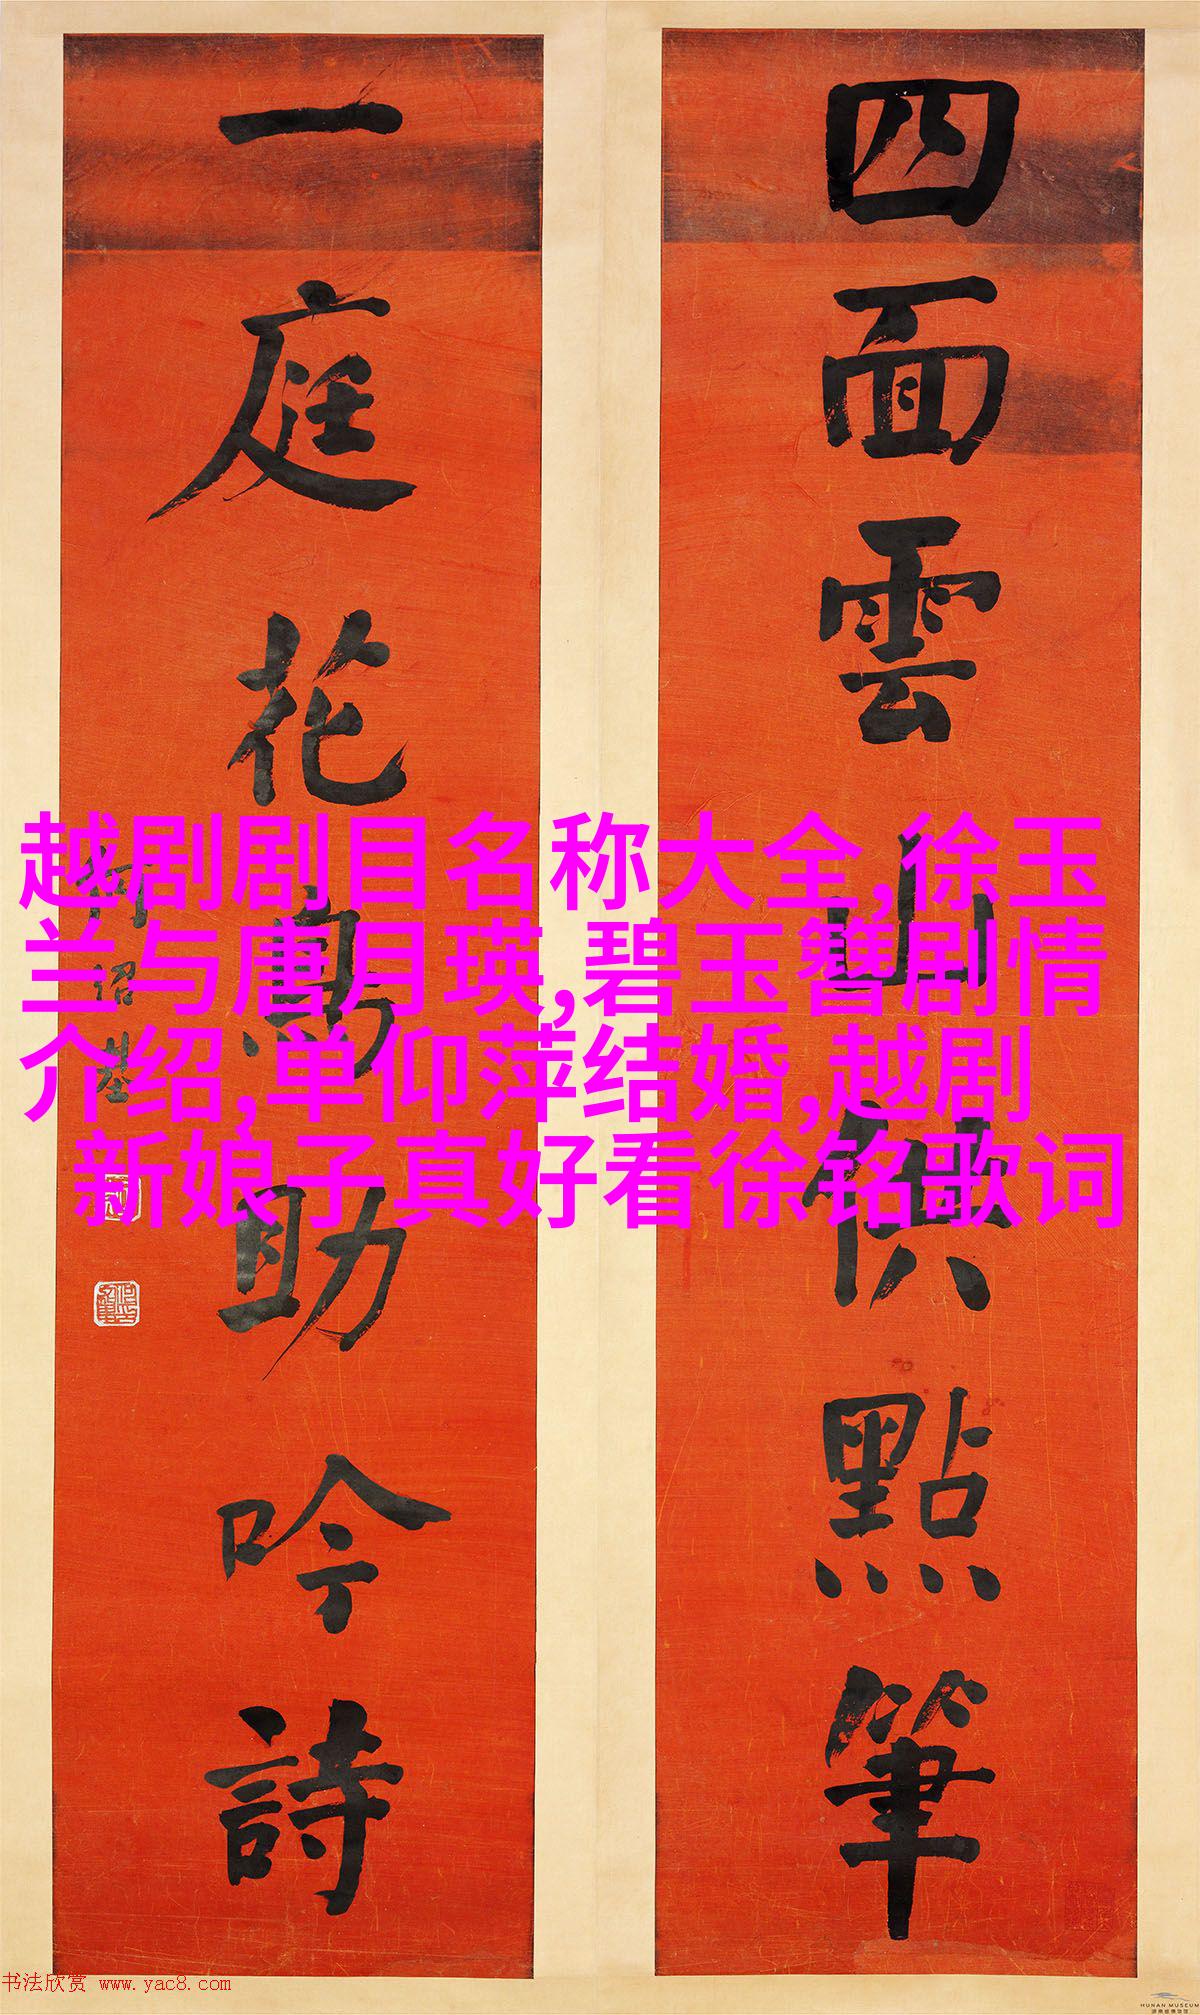 四面雲山供點筆
一庭花鳥助吟詩
何紹基
越剧剧目名称大全,徐玉
兰与唐月瑛,碧玉簪剧情
介绍,单仰萍结婚,越剧
新娘子真好看徐铭歌词
书法欣赏 www.yac8.com
HUNAN MUSEUM
湖南博物院